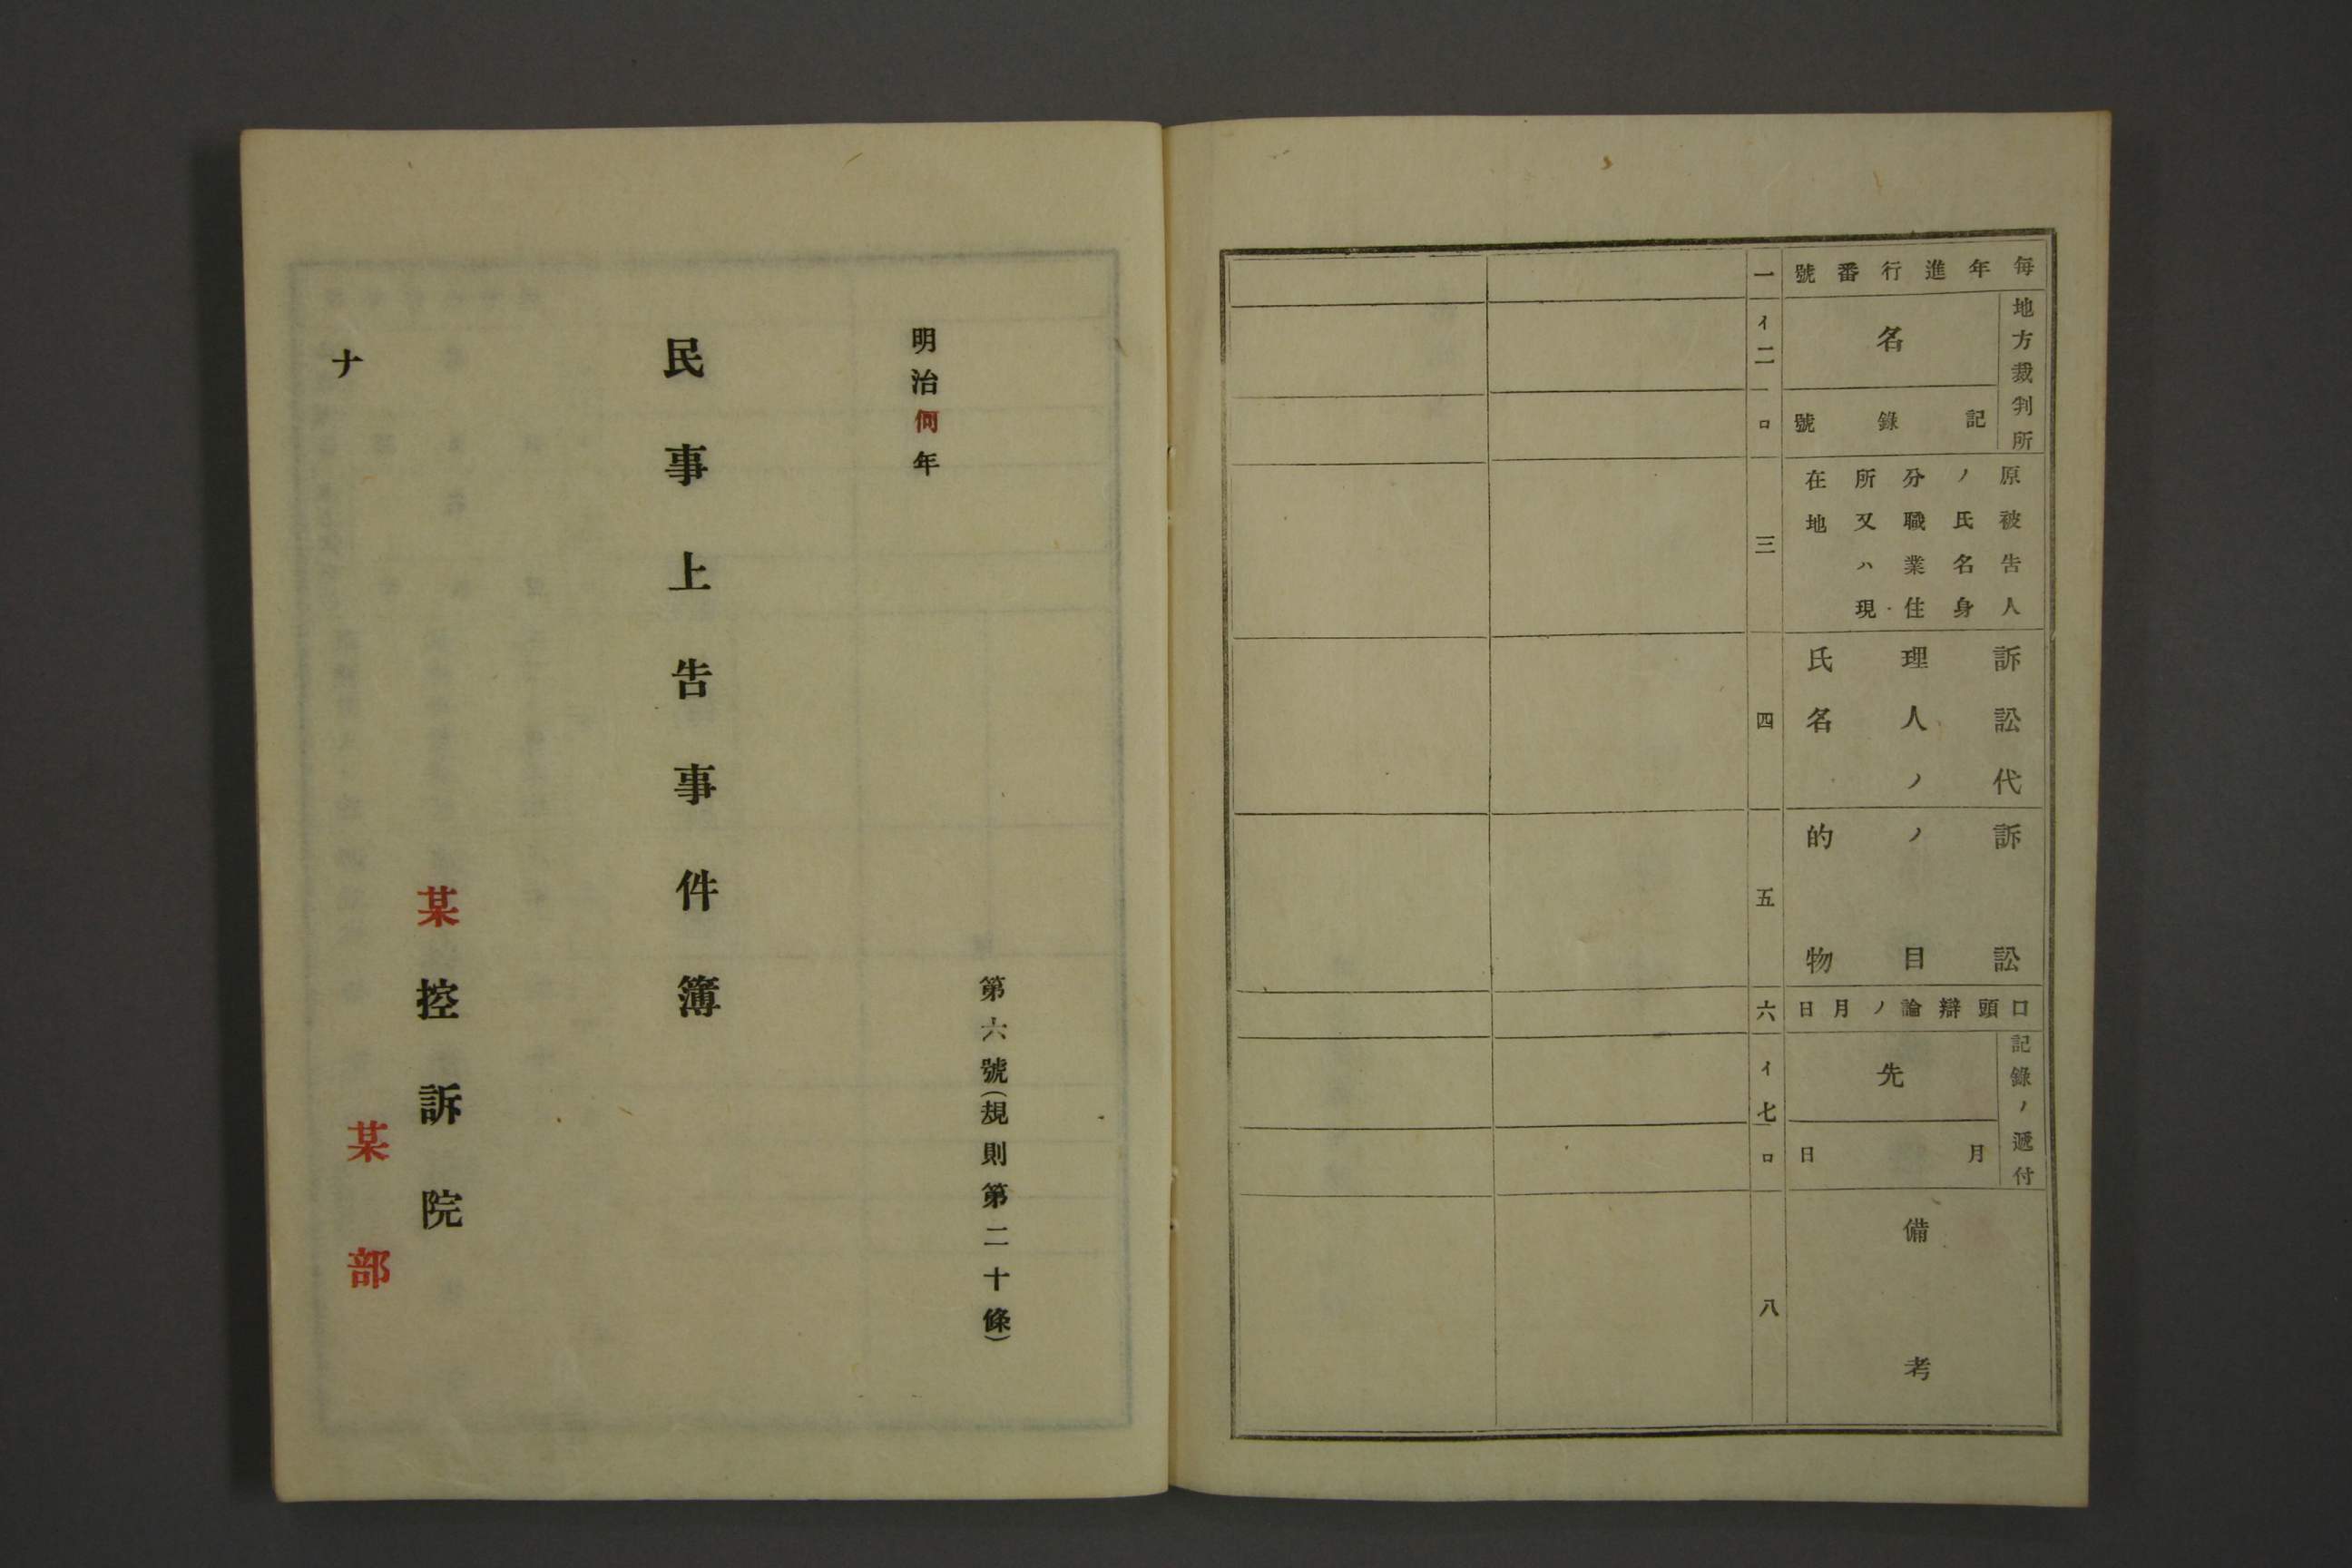 毎年進行番號
地方裁判所
名
記錄號
原被告人
ノ氏名身
分職業住
所又ハ現
在地
訴訟代
理人ノ
氏名
訴訟
ノ目
的物
口頭辯論ノ月日
記錄ノ遞付
先
月日
備考
一
イ二ロ
三
四
五
六
イ七ロ
八
第六號(規則第二十條)
明治何年
民事上告事件簿
某控訴院
某部
ナ